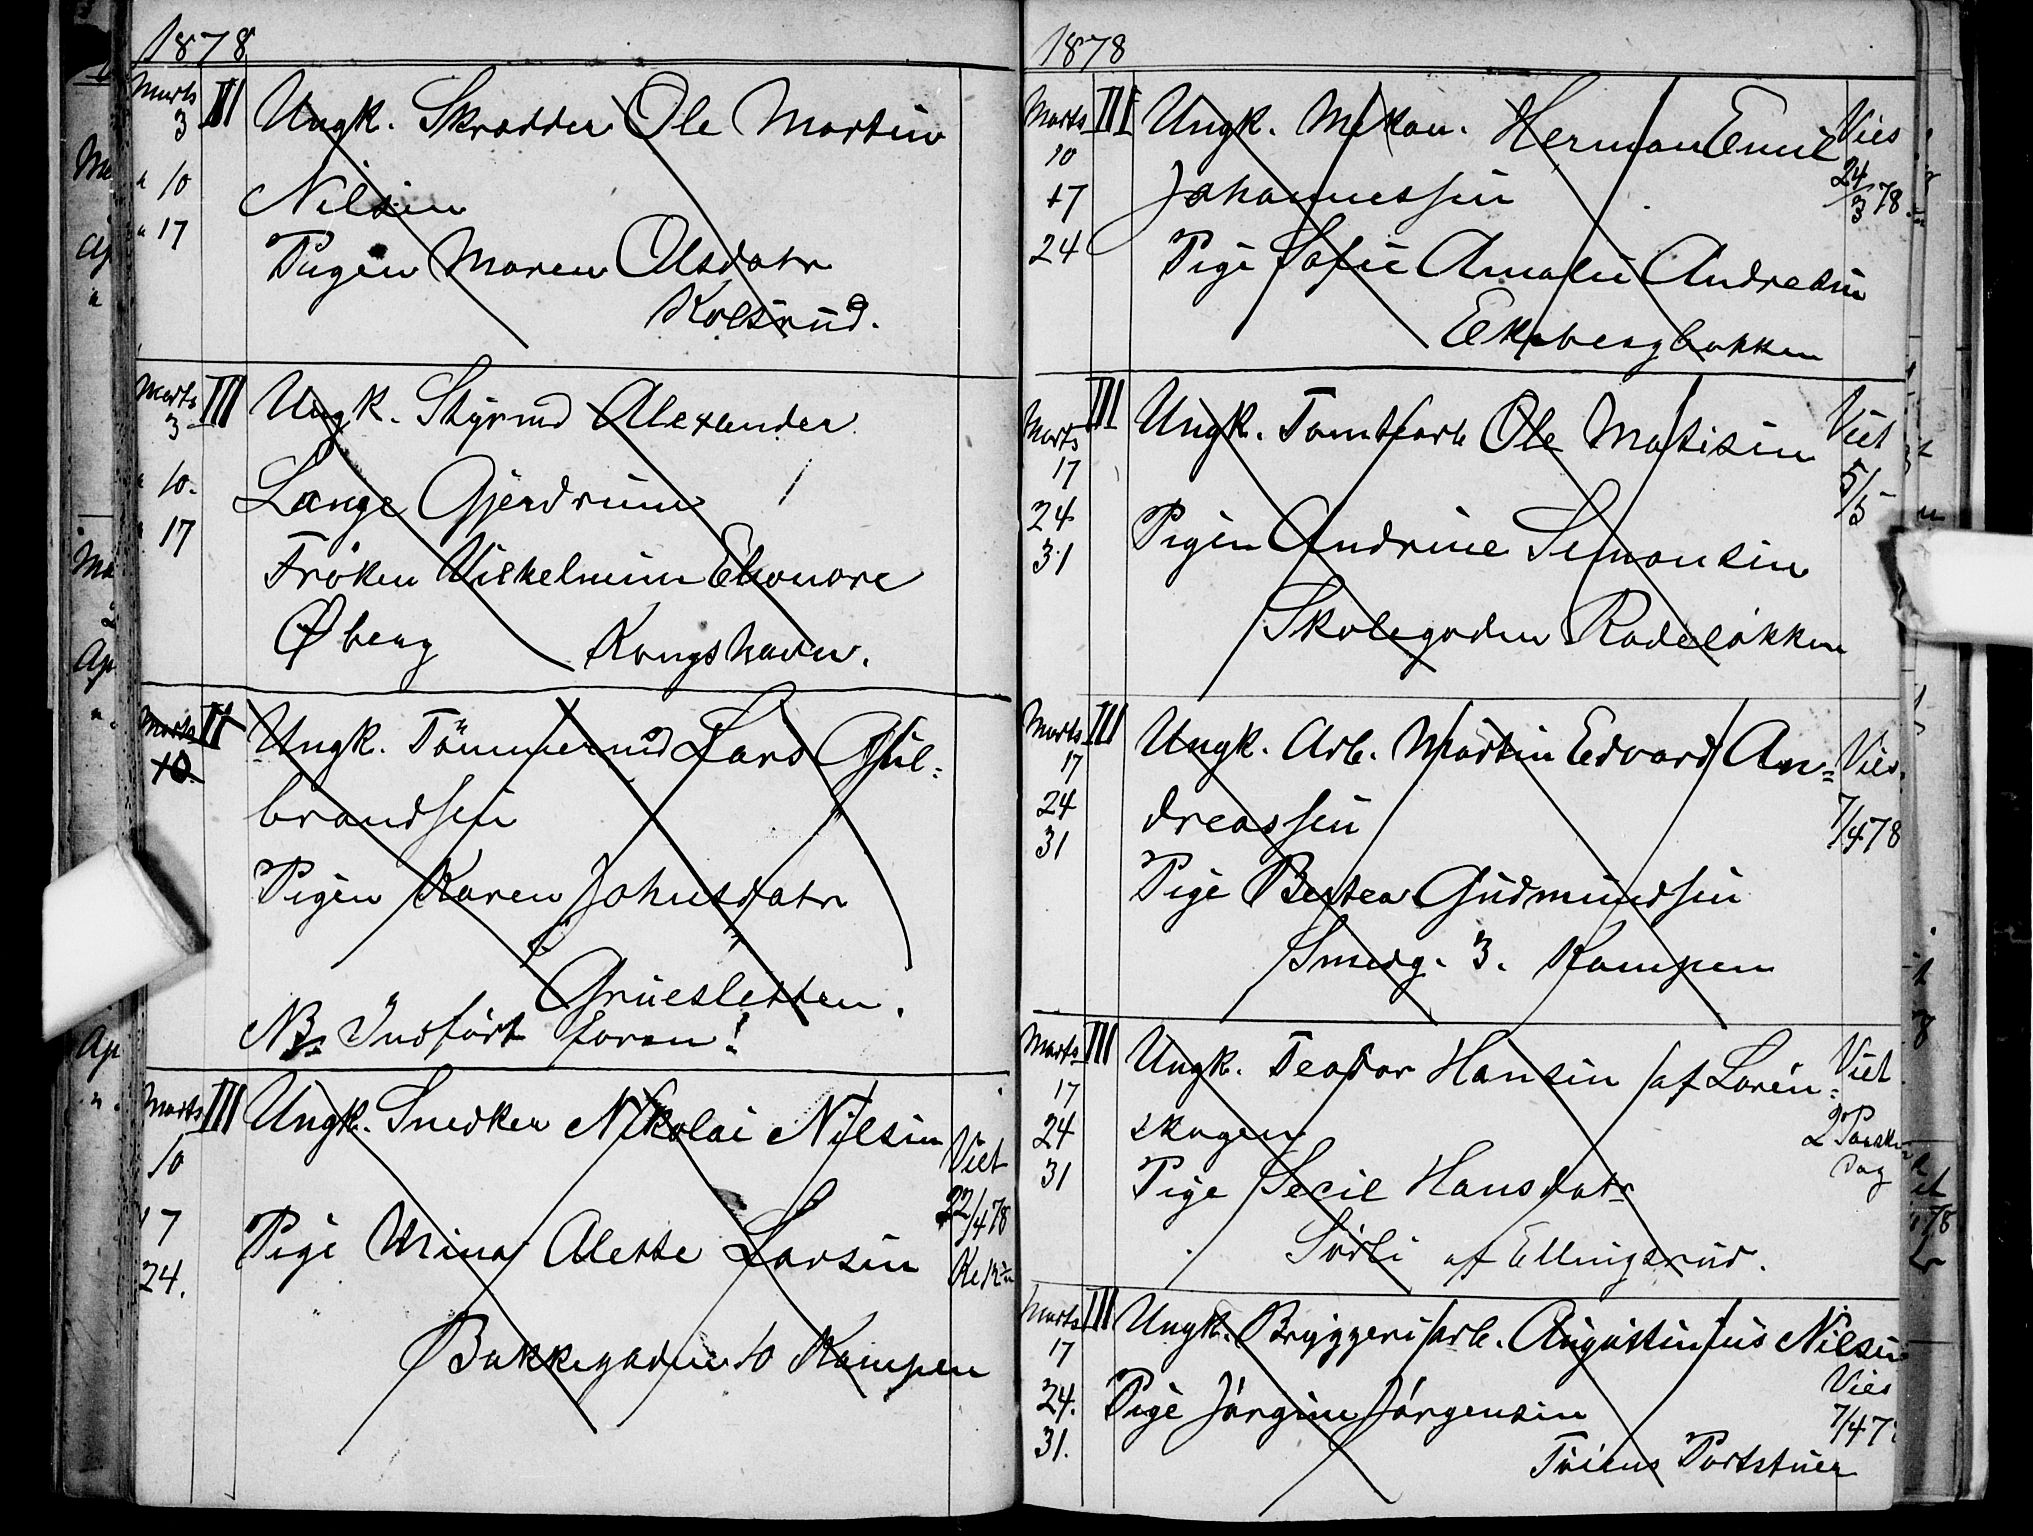 1878
Marts III Ungk. Skrædder Ole Martin
3
" 10 Nilsen
" 17 Pigen Maren Olsdatr
Kolsrud.
Marts III Ungk. Styrmd Alexander
3
" 10. Lange Gjerdrum
" 17 Frøken Vilhelmine Elonore
Øberg Kongshavn.
Marts II Ungk. Tömmermd Lars Gul-
10. brandsen
Pigen Karen Johnsdatr
Grüesletten.
NB. Indført foran!
Marts III Ungk. Snedker Nikolai Nilsen Viet
10
17 Pige Mina Alette Larsen 22/4 78
24.
Bakkegaden 10 Kampen
1878
Marts III Ungk. Mekan. Herman Emil Vies
10 24/3 78.
17 Johannessen
24 Pige Sofie Amalie Andresen
Ekebergbakken
Marts III Ungk. Tomtearb Ole Matisen Viet
17 5/5
24 Pigen Andrine Simonsen
31
Skolegaden Rodeløkken
Marts III Ungk. Arb. Martin Edvard An= Vies.
17
24 dreassen 7/4 78
31
Pige Bertea Gudmundsen
Smedg. 3. Kampen
Marts III Ungk. Teodor Hansen af Loren= Viet
17
24 skogen 2 Paaske
31 Pige Secil Hansdatr Dag
Sørli af Ellingsrud.
Marts III Ungk. Bryggeriarb. Augustinius Nilsen
17 Vies
24. Pige Jørgine Jørgensen 7/4 7
31.
Portstuer